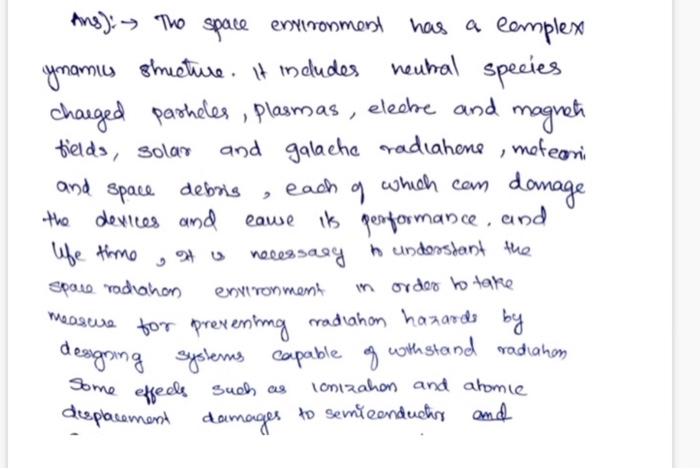 Ans):→ The space environment has a complex
ynamics structure. It includes neutral species
charged particles, plasmas, electric and magneti
fields, solar and galactic radiations, meteori
and space debris, each of which can damage
the devices and cause its performance. and
life time, It is necessary to understant the
space radiation environment in order to take
measure for preventing radiation hazards by
designing systems capable of withstand radiation
Some effects such as ionization and atomic
displacement damages to semiconductor and